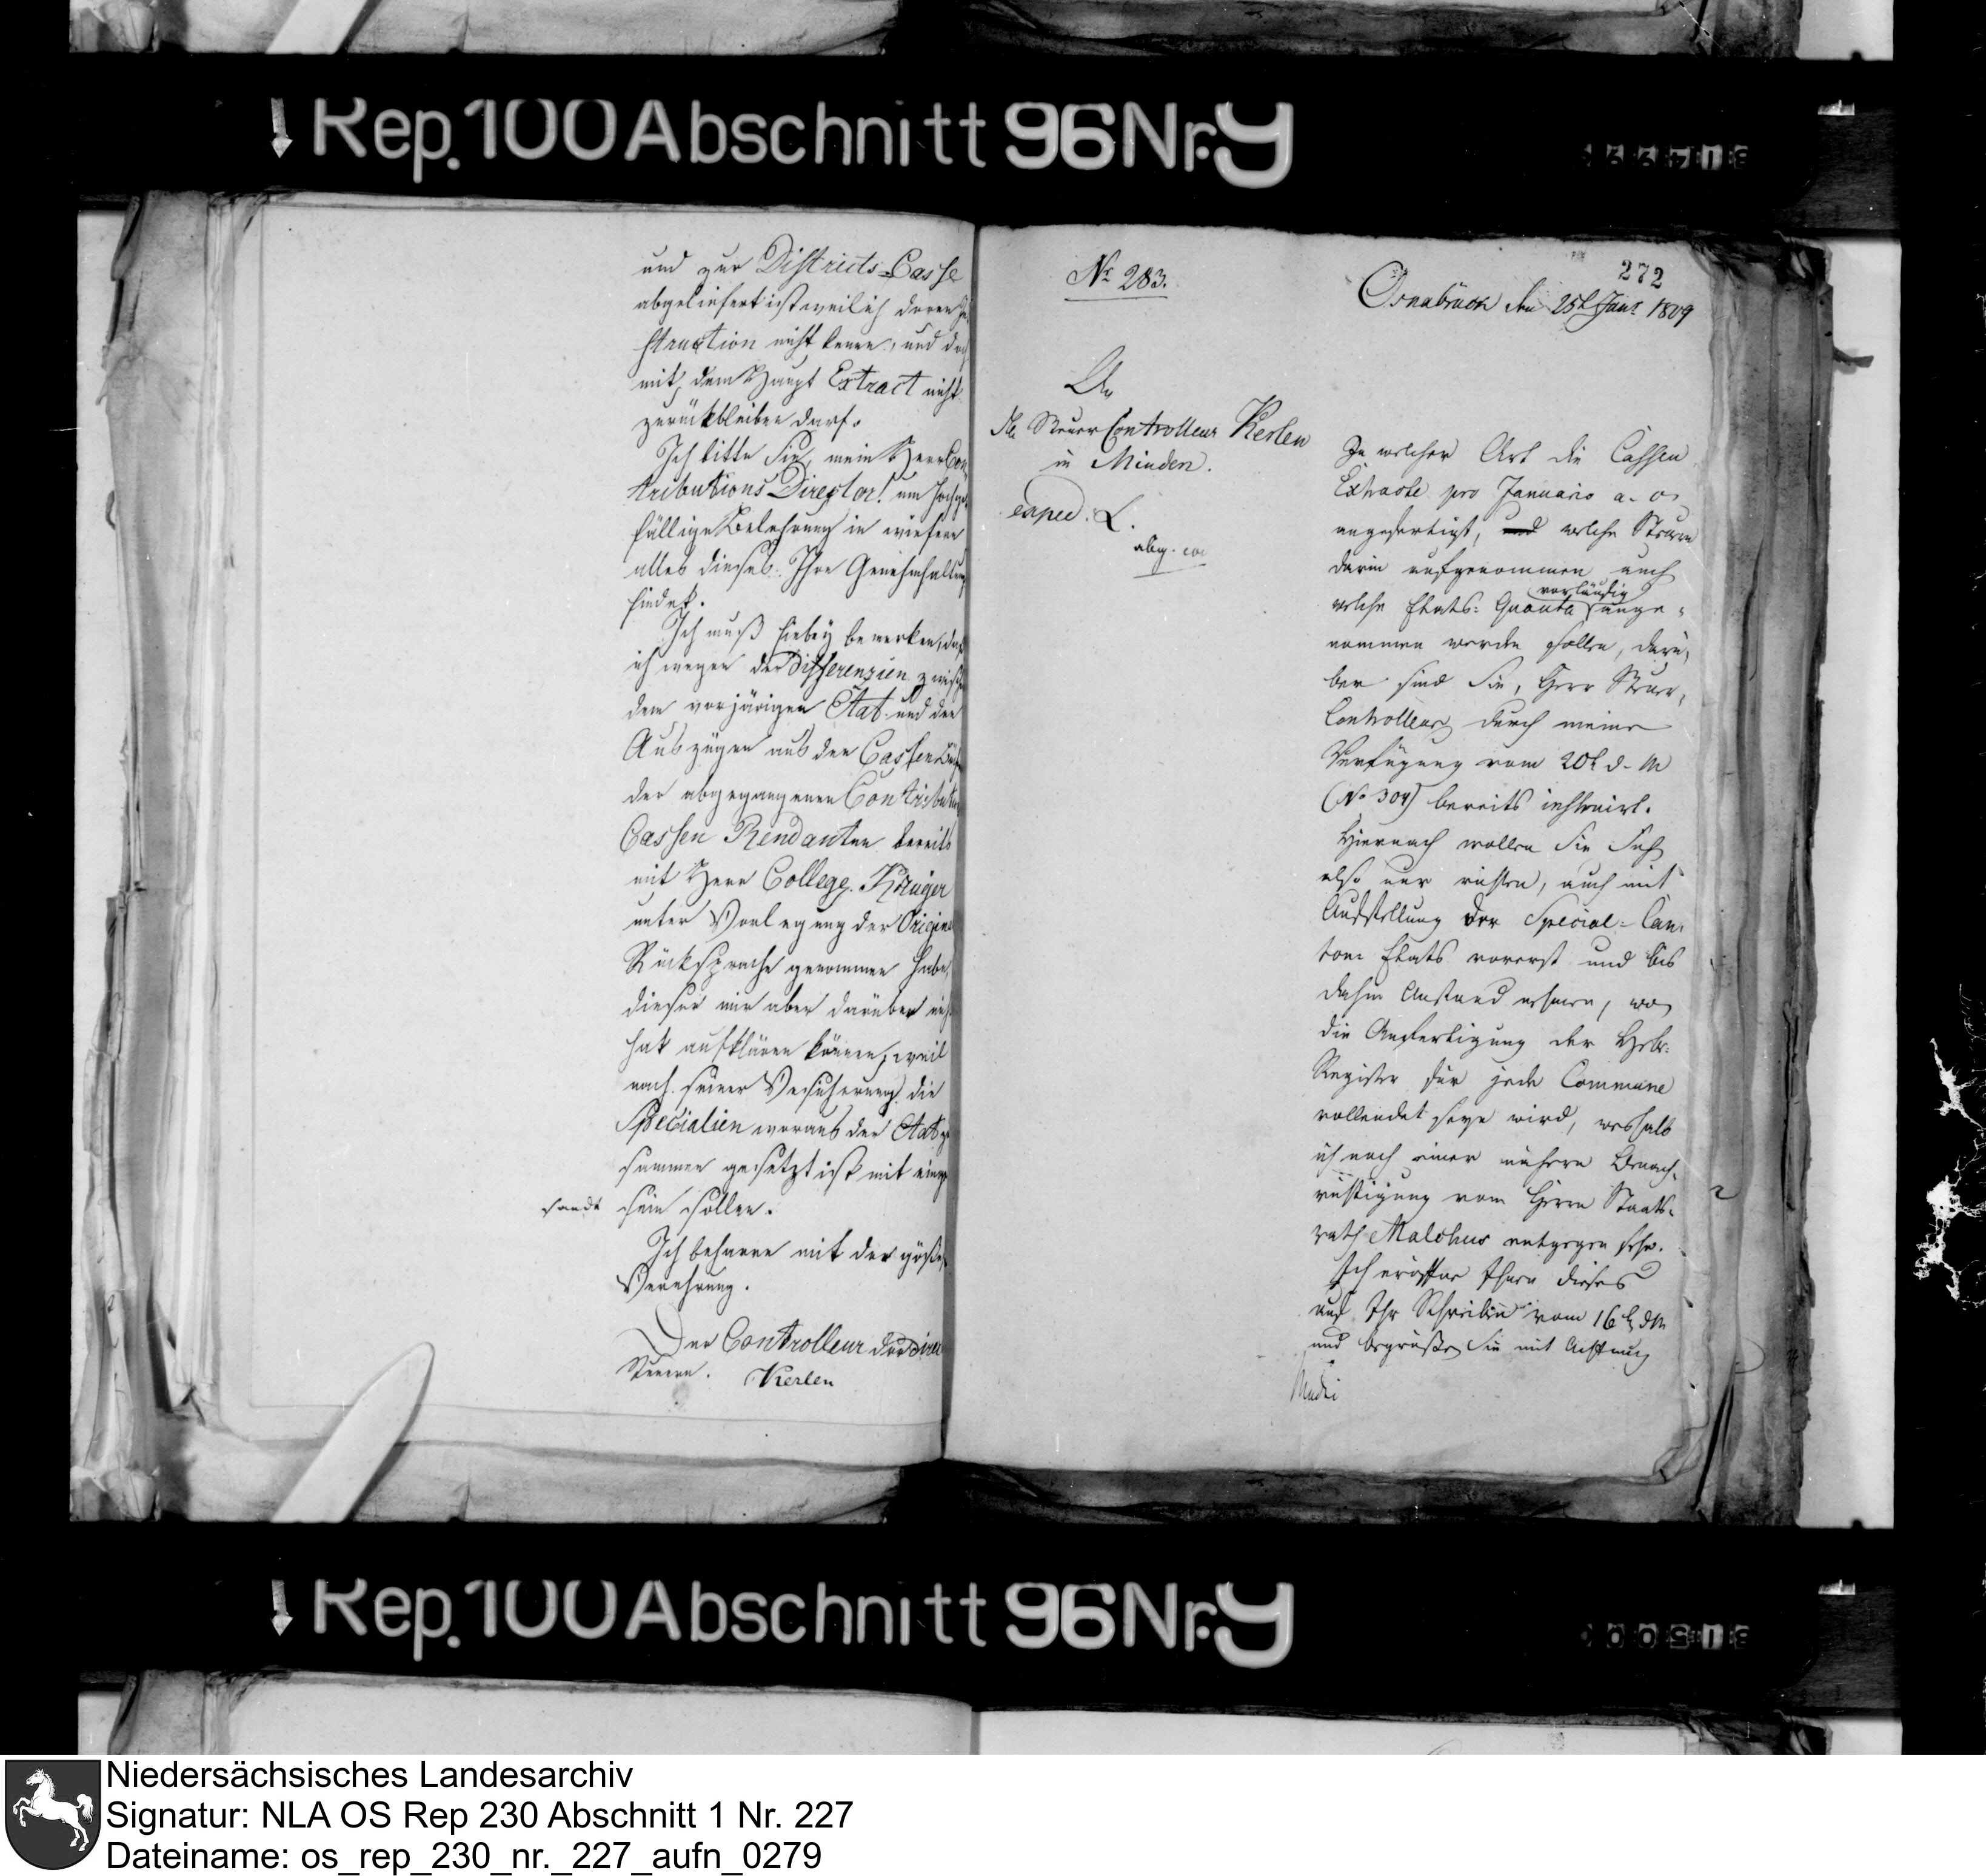 Rep. 100 Abschnitt 96 Nr. 9
und zur Districts-Casse
abgeliefert ist weil ich deren In
struction nicht kenne, und doch
mit dem Haupt Extract nicht
zurückbleiben darf.
Ich bitte Sie, mein Herr Con
tributions Director! um hochge
fällige Belehrung in wiefern
alles dieses Ihre Genehmhaltung
findet.
Ich muß hiebey bemerken, daß
ich wegen der Differenzien zwischen
dem vorjärigen Etat und den
Auszügen aus den Cassen Büch
der abgegangenen Contribution
Cassen Rendanten bereits
mit Herr College Krüger
unter Vorlegung der Origina
Rücksprache genommen habe,
dieser mir aber darüber nicht
hat aufklären können, weil
nach seiner Versicherung die
Specialien woraus der Etat zu
summen gesetzt ist mit einge
sandt sein sollen.
Ich beharre mit der größten
Verehrung.
Der Controlleur der direc
Steuern. Kerlen
272
No 283.
Osnabrück den 25t Janr 1809
An
den Steuer Controlleur Kerlen
in Minden.
exped. L.
abg. eod
In welcher Art die Cassen
Extracte pro Januario a. c.
angefertigt, und welche Steuern
darin aufgenommen auch
vorläufig
welche Etats-Quanta ange-
nommen werden sollen, darü-
ber sind Sie, Herr Steuer-
Controlleur durch meine
Verfügung vom 20t d. M
(No 304) bereits instruirt.
Hiernach wollen Sie Sich
also nur richten, auch mit
Aufstellung der Special-Can-
tons Etats vorerst und bis
dahin Anstand nehmen, wo
die Anfertigung der Hebe-
Register für jede Commune
vollendet seyn wird, weshalb
ich noch einer nähern Benach-
richtigung vom Herrn Staats-
rath Malchus entgegen sehe.
Ich eröffne Ihnen dieses
auf Ihr Schreiben vom 16t d M
und begrüße Sie mit Achtung
Rep. 100 Abschnitt 96 Nr. 9
Niedersächsisches Landesarchiv
Signatur: NLA OS Rep 230 Abschnitt 1 Nr. 227
Dateiname: os_rep_230_nr._227_aufn_0279